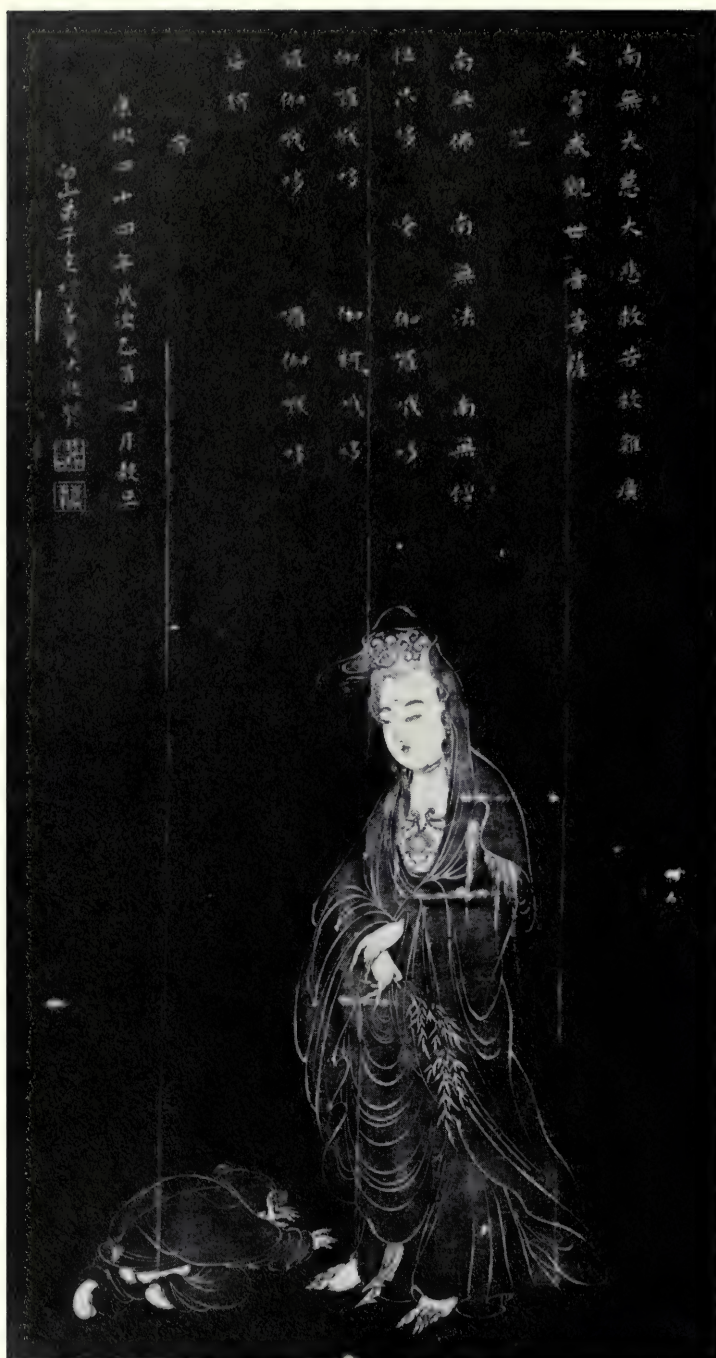 南無大慈大悲救苦救難廣
大靈感觀世音菩薩
南無佛 南無法 南無僧
怛哆 唵 伽囉伐哆
伽囉伐哆 伽訶伐哆
囉伽伐哆 囉伽伐哆
娑訶
康熙四十四年歲次乙酉四月穀旦
弟子